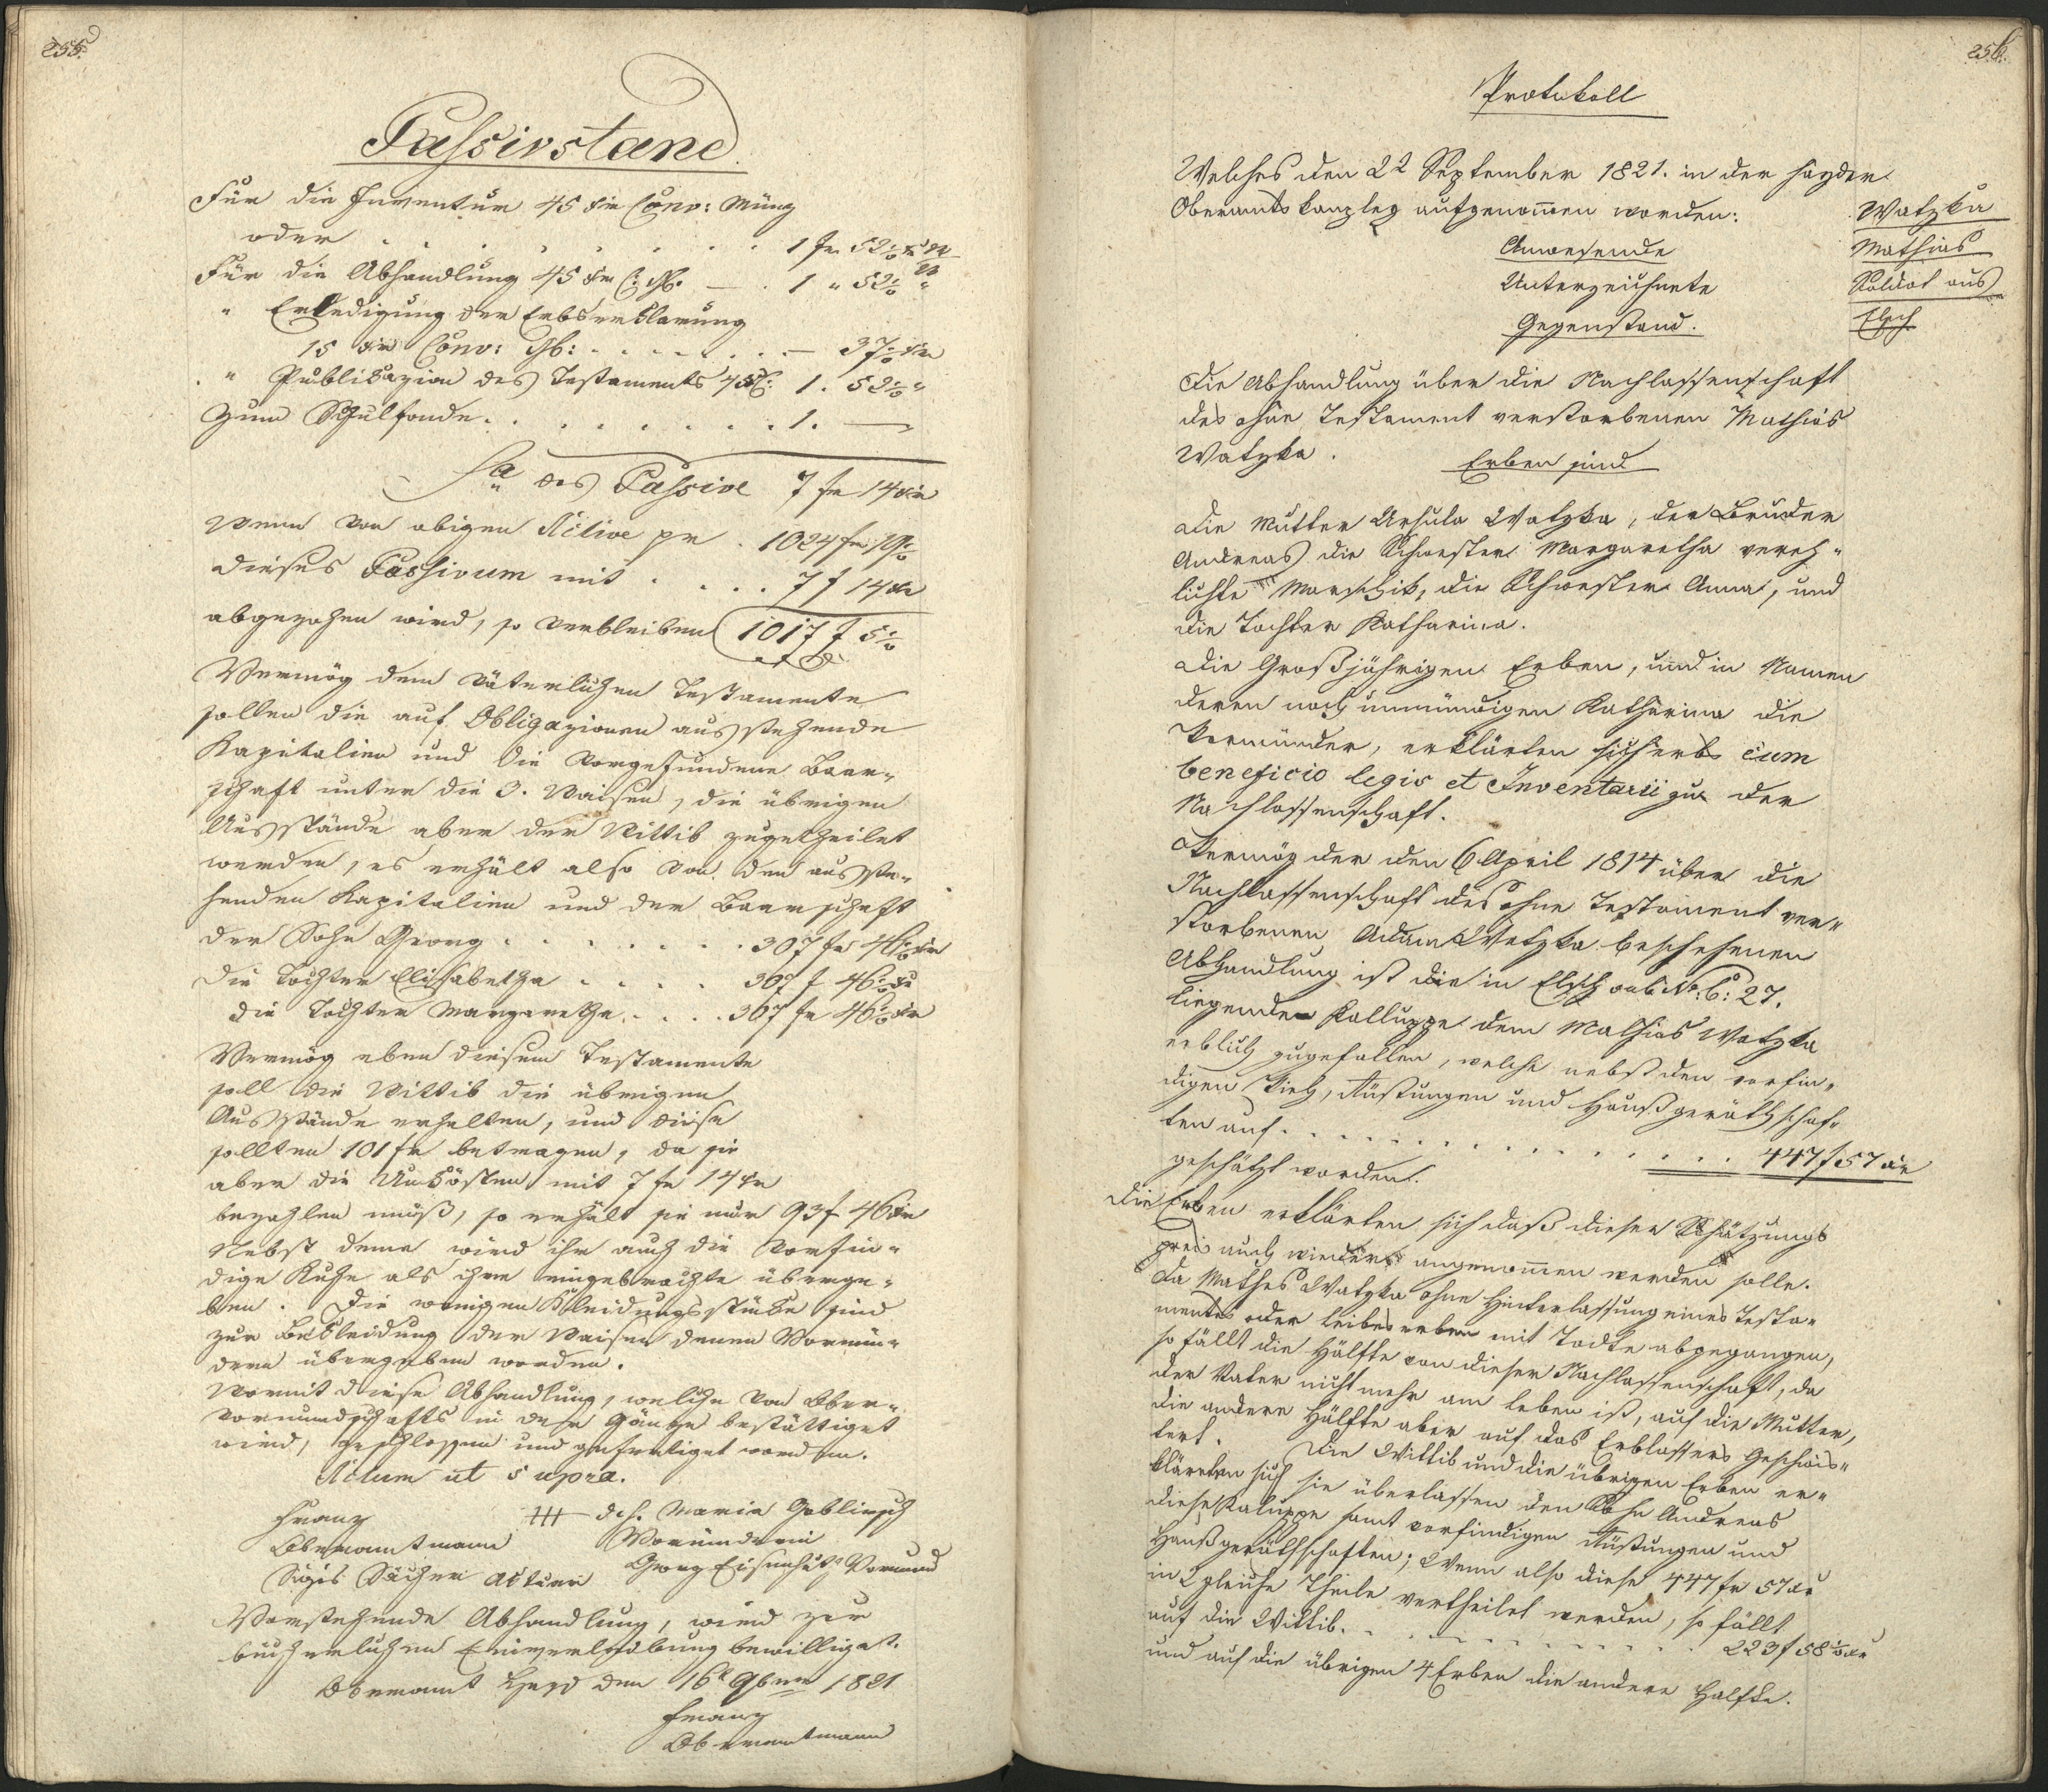 255.
Passivstand.
Für die Inventur 45 kr Conv: Münz
oder . . . . . . . . 1 fr 52 1/2 kr
Für die Abhandlung 45 kr C: M. — . 1 " 52 1/2 "
" Erledigung der Erbserklärung
15 kr Conv: M: . . . . . . — 37 1/2 kr
" Publikazion des Testaments 45 C: 1. 52 1/2 "
Zum Schulfonde. . . . . . . . 1. —
Sa des Passive 7 fr 14 kr
Wenn von obigen Active pr . 1024 fr
dieses Passivum mit . . . . 7 f 14 kr
abgezohen wird, so verbleiben 1017 f 5 1/2
Vermög dem väterlichen Testamente
sollen die auf Obligazionen ausstehende
Kapitalien und die vorgefundene Baar-
schaft unter die 3. Waisen, die übrigen
Ausstände aber der Wittib zugetheilet
werden, es erhält also von den ausste-
henden Kapitalien und der Baarschaft
der Sohn Georg . . . . . . . 307 fr 46 1/2 kr
die Tochter Elisabetha . . . . 307 f 46 1/2 kr
die Tochter Margaretha . . . . 307 fr 46 1/2 kr
Vermög eben diesem Testamente
soll die Wittib die übrigen
Ausstände erhalten, und diese
sollten 101 fr betragen, da sie
aber die Unkösten mit 7 fr 14 kr
bezahlen muß, so erhält sie nur 93 f 46 kr
Nebst deme wird ihr auch die vorfin-
dige Kuhe als ihre eingebrachte überge-
ben. Die wenigen Kleidungsstücke sind
zur Bekleidung der Waisen denen Vormün-
dern übergeben worden.
Womit diese Abhandlung, welche von Ober-
vormundschafts in der Gänze bestättiget
wird, geschlossen und gefertiget worden.
Actum ut supra.
Franz +++ dch. Maria Goblirsch
Oberamtmann Vormünderin
Sigis Aktuar Georg Eisenhut Vormund
Vorstehende Abhandlung, wird zur
bücherlichen Einverleibung bewilliget.
Oberamt Hayd den 16t 9ber 1821
Franz
Oberamtmann
256.
Protokoll
Welches den 22 September 1821. in der Hayder
Oberamts Kanzley aufgenommen worden:
Watzka
Mathias
Soldat aus
Elsch
Anwesende
Unterzeichnete
Gegenstand.
Die Abhandlung über die Nachlassenschaft
des ohne Testament verstorbenen Mathias
Watzka.
Erben sind
Die Mutter Ursula Watzka, der Bruder
Andreas die Schwester Margaretha vereh-
lichte Marschik, die Schwester Anna, und
die Tochter Katharina.
Die Großjährigen Erben, und in Namen
deren noch unmündigen Katharina die
Vormünder, erklärten sich erbs cum
beneficio legis et Inventarii zu der
Nachlassenschaft.
Vermög der den 6 April 1814 über die
Nachlassenschaft des ohne Testament ver-
storbenen Adam Watzka beschehenen
Abhandlung ist die in Elsch sub No: C: 27.
liegende Kalluppe dem Mathias Watzka
erblich zugefallen, welche nebst den vorfin-
digen Vieh, Rüstungen und Haußgeräthschaf-
ten auf . . . . . . . . . . . . 447 f 57 kr
geschätzt worden.
Die Erben erklärten sich daß dieser Schätzungs
preis auch wieder angenommen werden solle.
Da Mathes Watzka ohne Hinterlassung eines Testa-
mentes oder Leibeserben mit Todte abgegangen,
so fällt die Hälfte von dieser Nachlassenschaft, da
der Vater nicht mehr am Leben ist, auf die Mutter,
die andere Hälfte aber auf das Erblassers Geschwis-
tert. Die Wittib und die übrigen Erben er-
klärten sich sie überlassen den Sohn Andreas
diese Kaluppe samt vorfindigen Rüstungen und
Haußgeräthschaften; Wenn also diese 447 fr 57 kr
in 2 gleiche Theile vertheilet werden, so fällt
auf die Wittib. . . . . . . . . . . 223 f 58 1/2 kr
und auf die übrigen 4 Erben die andere Halfte.